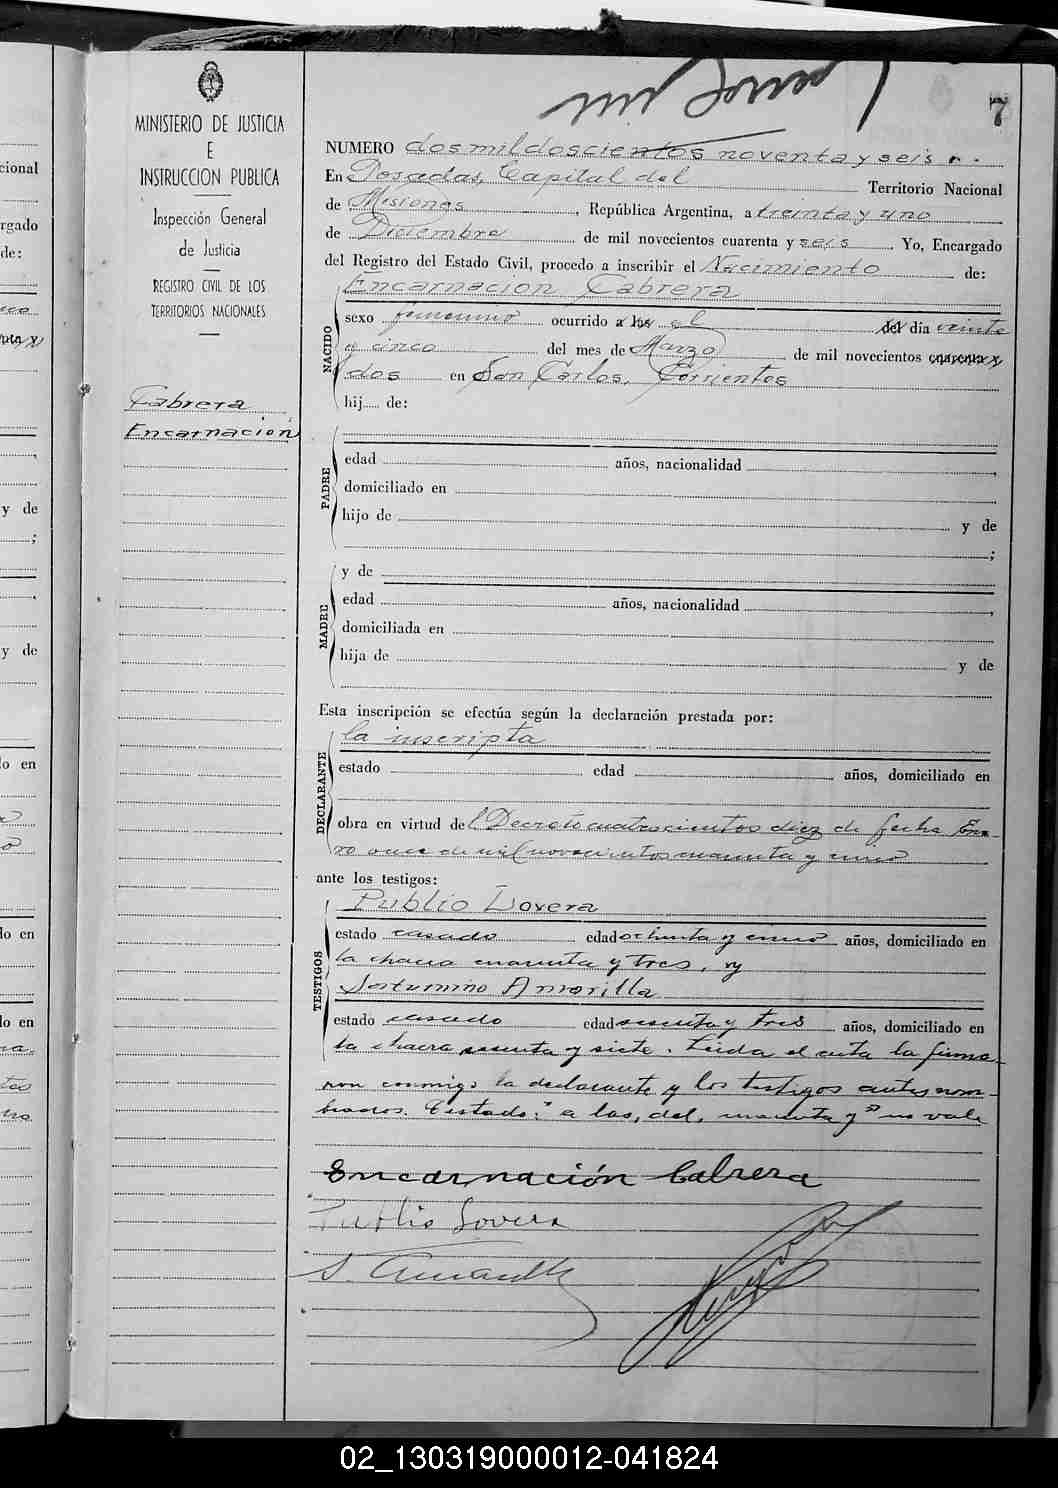 7
MINISTERIO DE JUSTICIA
E
INSTRUCCION PUBLICA
Inspección General
de Justicia
REGISTRO CIVIL DE LOS
TERRITORIOS NACIONALES
Cabrera
Encarnación
NUMERO dosmildoscientos noventa y seis
En Posadas, Capital del Territorio Nacional
de Misiones, República Argentina, a treinta y uno
de Diciembre de mil novecientos cuarenta y seis. Yo, Encargado
del Registro del Estado Civil, procedo a inscribir el Nacimiento de:
NACIDO
Encarnacion Cabrera
sexo femenino ocurrido a las el del día veinte
y cinco del mes de Marzo de mil novecientos cuarenta y
dos en San Carlos, Corrientes
hij..... de:
PADRE
edad años, nacionalidad
domiciliado en
hijo de y de
;
MADRE
y de
edad años, nacionalidad
domiciliada en
hija de y de
Esta inscripción se efectúa según la declaración prestada por:
DECLARANTE
la inscripta
estado edad años, domiciliado en
obra en virtud del Decreto cuatrocientos diez de fecha Ene-
ro once de mil novecientos cuarenta y cinco
ante los testigos:
TESTIGOS
Publio Lovera
estado casado edad ochenta y cinco años, domiciliado en
la chacra cuarenta y tres, y
Saturnino Amarilla
estado casado edad sesenta y tres años, domiciliado en
la chacra sesenta y siete. Leida el acta la firma-
ron conmigo la declarante y los testigos antes nom-
brados. Testado: "a las, del, cuarenta y" no vale
Encarnación Cabrera
Publio Lovera
S. Amarilla
02_130319000012-041824